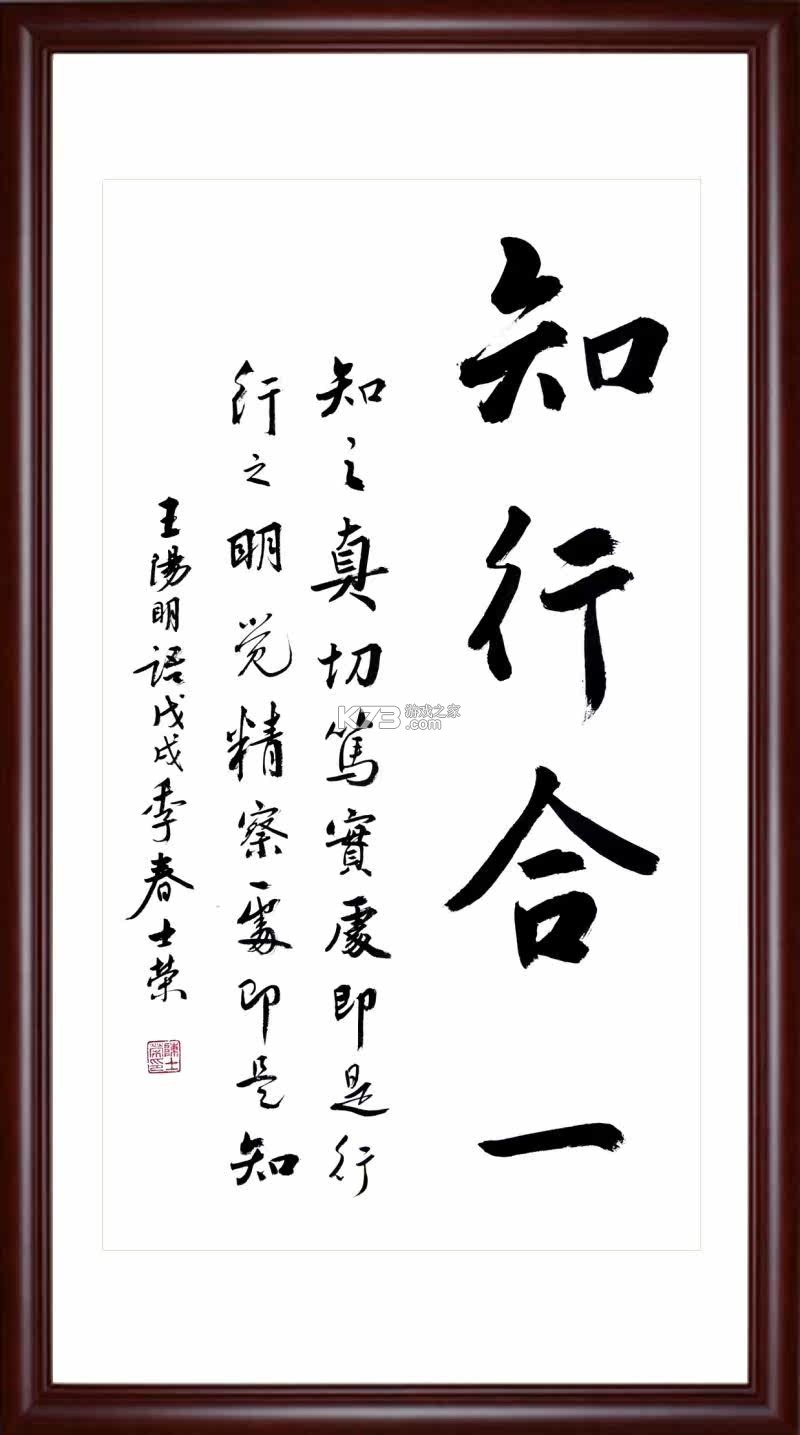 知行合一
知之真切篤實處即是行
行之明觉精察處即是知
王陽明語戊戌季春士荣
陳士荣印
K73 游戏之家
.com